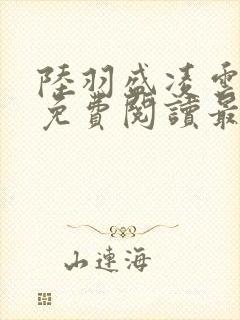 陸羽盛凌雲
免費閱讀最
山連海